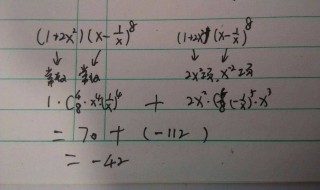 (1+2x²)(x-1/x)⁸ (1+2x²)(x-1/x)⁸
↓ ↓ ↓ ↓
常数 常数 2x²项. x⁻²项
1·C⁴₈·x⁴(1/x)⁴ + 2x²·C⁵₈(-1/x)⁵·x³
= 70 + (-112)
= -42